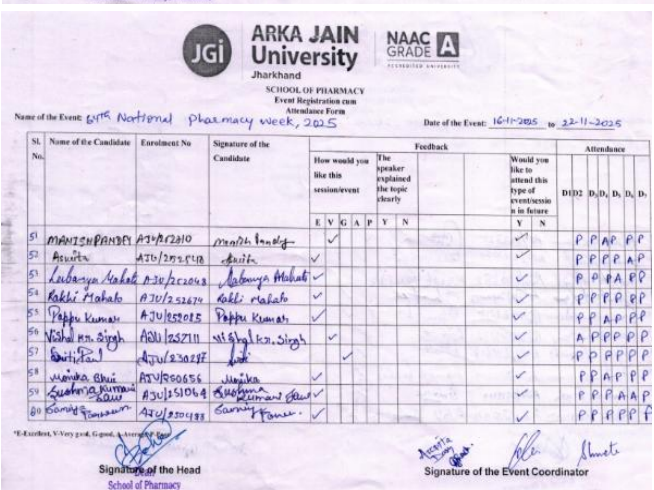 JGi
ARKA JAIN
University
Jharkhand
NAAC
GRADE A
ACCREDITED UNIVERSITY
SCHOOL OF PHARMACY
Event Registration cum
Attendance Form
Name of the Event: 64th National Pharmacy Week, 2025 Date of the Event: 16-11-2025 to 22-11-2025
Sl. No. Name of the Candidate Enrolment No Signature of the Candidate Feedback Attendance
How would you like this session/event The speaker explained the topic clearly Would you like to attend this type of event/sessio n in future D1 D2 D3 D4 D5 D6 D7
E V G A P Y N Y N
51 MANISH PANDEY AJU/252810 Manish Pandey ✓ ✓ P P A P P P
52 Asmita ✓ ✓ P P P P A P
53 Mahato AJU/252048 Mahato ✓ ✓ P P P A P P
54 Rakhi Mahato AJU/252674 Rakhi Mahato ✓ ✓ P P P P P P
55 Pappu Kumar AJU/252085 Pappu Kumar ✓ ✓ P P A P P P
56 Vishal Kr. Singh AJU/252711 Vishal Kr. Singh ✓ ✓ A P P P P P
57 Paul AJU/230287 ✓ ✓ P P P P P P
58 Monika Bhui AJU/250656 Monika ✓ ✓ P P A P P P
59 Sushma Kumari AJU/251064 Sushma Kumari ✓ ✓ P P P A A P
60 ✓ ✓ P P P P P P
*E-Excellent, V-Very good, G-good, A-Average, P-Poor
Signature of the Head
School of Pharmacy
Signature of the Event Coordinator